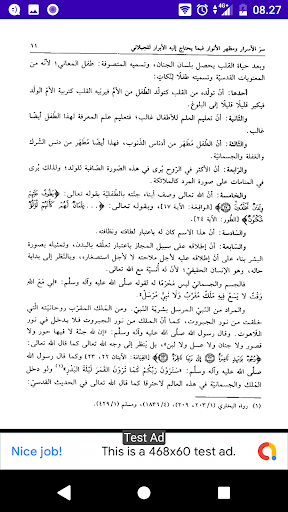 08.27
سرّ الأسرار ومظهر الأنوار فيما يحتاج إليه الأبرار للجيلاني
١١
وبعد حياة القلب يحصل بلسان الجنان، ويسميه المتصوفة: طفل المعاني؛ لأنه من
المعنويات القدسيّة وتسميته طفلًا لنِكاتٍ:
أحدها: أن تولُّد القلب كتولُّد الطفل من الأمّ فيربّيه القلب كتربية الأمّ الولد
فيكبر قليلًا قليلًا إلى البلوغ.
والثانية: أنّ تعليم العلم للأطفال غالب؛ فتعليم علم المعرفة لهذا الطفل أيضًا
غالب.
والثالثة: أنّ الطفل مطهّر من أدناس الذنوب، فهذا أيضًا مُطهّر من دنس الشرك
والغفلة والجسمانيّة.
والرابعة: أنّ الأكثر في الرّوح يُرى في هذه الصّورة الصّافية للولد؛ ولذلك يُرى
في المنامات على صورة المرد كالملائكة.
والخامسة: أنّ الله تعالى وصف أبناء جنّته بالطّفليّة بقوله تعالى: ﴿يَطُوفُ عَلَيْهِمْ
وِلْدَانٌ مُّخَلَّدُونَ﴾ [الواقعة: الآية ١٧]، وبقوله تعالى: ﴿... غِلْمَانٌ لَّهُمْ كَأَنَّهُمْ لُؤْلُؤٌ
مَّكْنُونٌ﴾ [الطور: الآية ٢٤].
والسادسة: أنّ هذا الاسم كان له باعتبار لطافته ونظافته.
والسابعة: أنّ إطلاقه على سبيل المجاز باعتبار تعلّقه بالبدن، وتمثيله بصورة
البشر بناء على أن إطلاقه لأجل ملاحته لا لأجل استصغاره، وبالنّظر إلى بداية
حاله، وهو الإنسان الحقيقيّ؛ لأنّ له أُنسيّة مع الله تعالى.
فالجسم والجسمانيّ ليس مَحْرمًا له لقوله صلّى الله عليه وآله وسلّم: «لي مع الله
وقت لا يسع فيه ملك مقرّب ولا نبيّ مرسل».
والمراد من النبيّ المرسل بشريّة النبيّ. ومن الملك المقرّب روحانيّته التي
خلقت من نور الجبروت، كما أنّ الملك من نور الجبروت فلا يدخل في نور
اللاهوت. وقال رسول الله صلّى الله عليه وآله وسلّم: «إن لله جنّة لا فيها حور ولا
قصور ولا جنان ولا عسل ولا لبن»، بل ينظر إلى وجه الله تعالى كما قال تعالى:
﴿وُجُوهٌ يَوْمَئِذٍ نَّاضِرَةٌ إِلَىٰ رَبِّهَا نَاظِرَةٌ﴾ [القيامة: الآيتان ٢٢، ٢٣] وكما قال رسول الله
صلّى الله عليه وآله وسلّم: «سترون ربّكم كما ترون القمر ليلة البدر»(١) ولو دخل
الملك والجسمانيّة في هذا العالم لاحترقا كما قال الله تعالى في الحديث القدسيّ:
(١) رواه البخاري (٢٠٣/١، ٢٠٩)، (١٨٣٦/٤)، ومسلم (٤٢٩/١).
Test Ad
Nice job!
This is a 468x60 test ad.